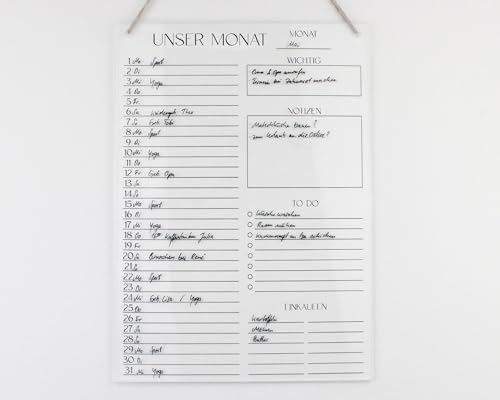 UNSER MONAT
MONAT
Mai
1 Mo Sport
2 Di
3 Mi Yoga
4 Do
5 Fr
6 Sa Kindergeb. Theo
7 So Geb. Tobi
8 Mo Sport
9 Di
10 Mi Yoga
11 Do
12 Fr Geb. Opa
13 Sa
14 So
15 Mo Sport
16 Di
17 Mi Yoga
18 Do Kaffeetrinken Julia
19 Fr
20 Sa Brunchen bei René
21 So
22 Mo Sport
23 Di
24 Mi Geb. Lisa / Yoga
25 Do
26 Fr
27 Sa
28 So
29 Mo Sport
30 Di
31 Mi Yoga
WICHTIG
Oma & Opa anrufen
Termin bei Zahnarzt machen
NOTIZEN
Matschküche bauen?
zum Urlaub an die Ostsee?
TO DO
Wäsche waschen
Rasen mähen
an schicken
EINKAUFEN
Kartoffeln
Möhren
Butter